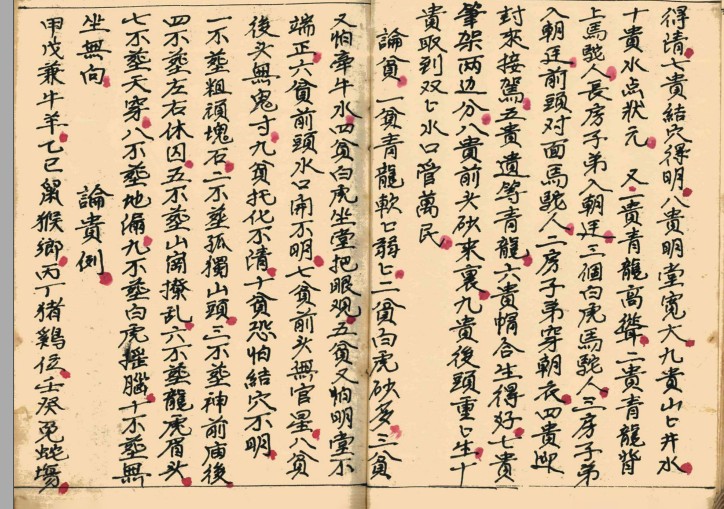 得清七貴結穴得明八貴明堂寬大九貴山匕井水
十貴水点狀元 又一貴青龍高聳二貴青龍背
上馬駝人長房子弟入朝廷三個白虎馬駝人三房子弟
入朝廷前頭对面馬駝人二房子弟穿朝衣四貴迎
封來接駕五貴遺等青龍六貴帽合生得好七貴
筆架两边分八貴前头砂來裏九貴後頭重匕生十
貴取到双匕水口管萬民
論貧 一貧青龍軟匕弱匕二貧白虎砂多三貧
又怕牽牛水四貧白虎坐堂把眼观五貧又怕明堂不
端正六貧前頭水口開不明七貧前头無官星八貧
後头無鬼寸九貧托化不清十貧恐怕結穴不明
一不塟粗頑塊石二不塟孤獨山頭三不塟神前庙後
四不塟左右休囚五不塟山岡撩乱六不塟龍虎眉头
七不塟天穿八不塟地漏九不塟白虎摇腦十不塟無
坐無向 論貴倒
甲戊兼牛羊乙己鼠猴鄉丙丁猪鷄位壬癸兔蛇塲